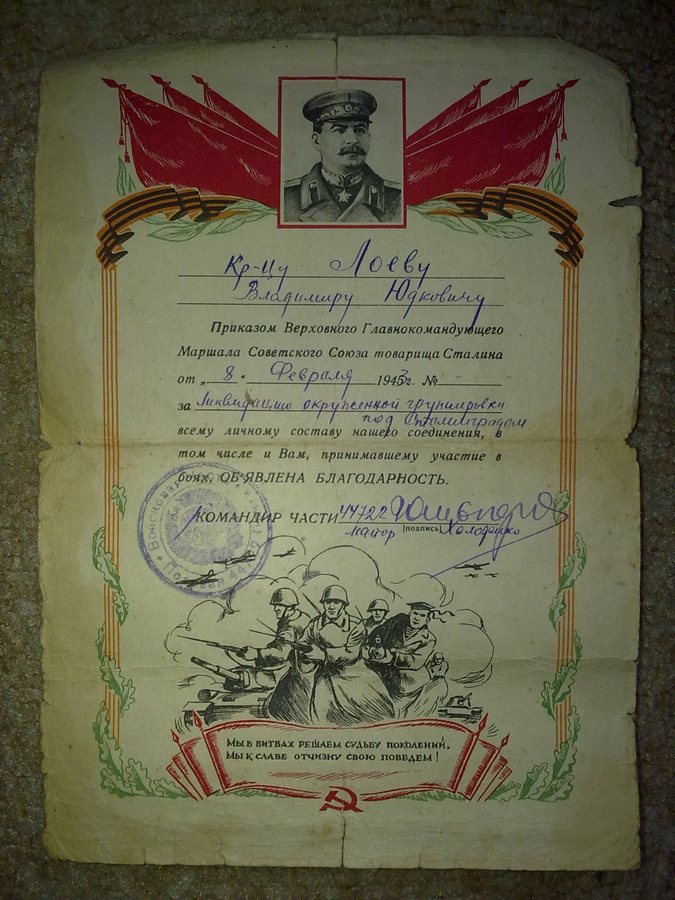 Кр-цу Лоеву
Владимиру Юдковичу
Приказом Верховного Главнокомандующего
Маршала Советского Союза товарища Сталина
от „ 8 " Февраля 1943 г. №
за Ликвидацию окруженной групировки
под Сталинградом
всему личному составу нашего соединения, в
том числе и Вам, принимавшему участие в
боях, ОБ'ЯВЛЕНА БЛАГОДАРНОСТЬ.
КОМАНДИР ЧАСТИ 44722
майор (подпись) Холоденко
МЫ В БИТВАХ РЕШАЕМ СУДЬБУ ПОКОЛЕНИЙ,
МЫ К СЛАВЕ ОТЧИЗНУ СВОЮ ПОВЕДЕМ!